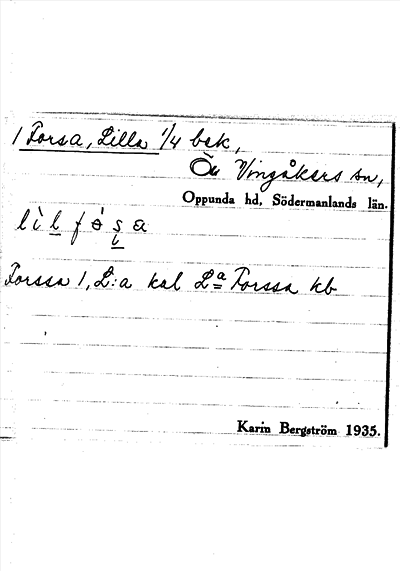 1 Forsa, Lilla 1/4 bek,
Öa Vingåkers sn,
Oppunda hd, Södermanlands län.
Forssa 1, L:a kal La Forssa kb
Karin Bergström 1935.